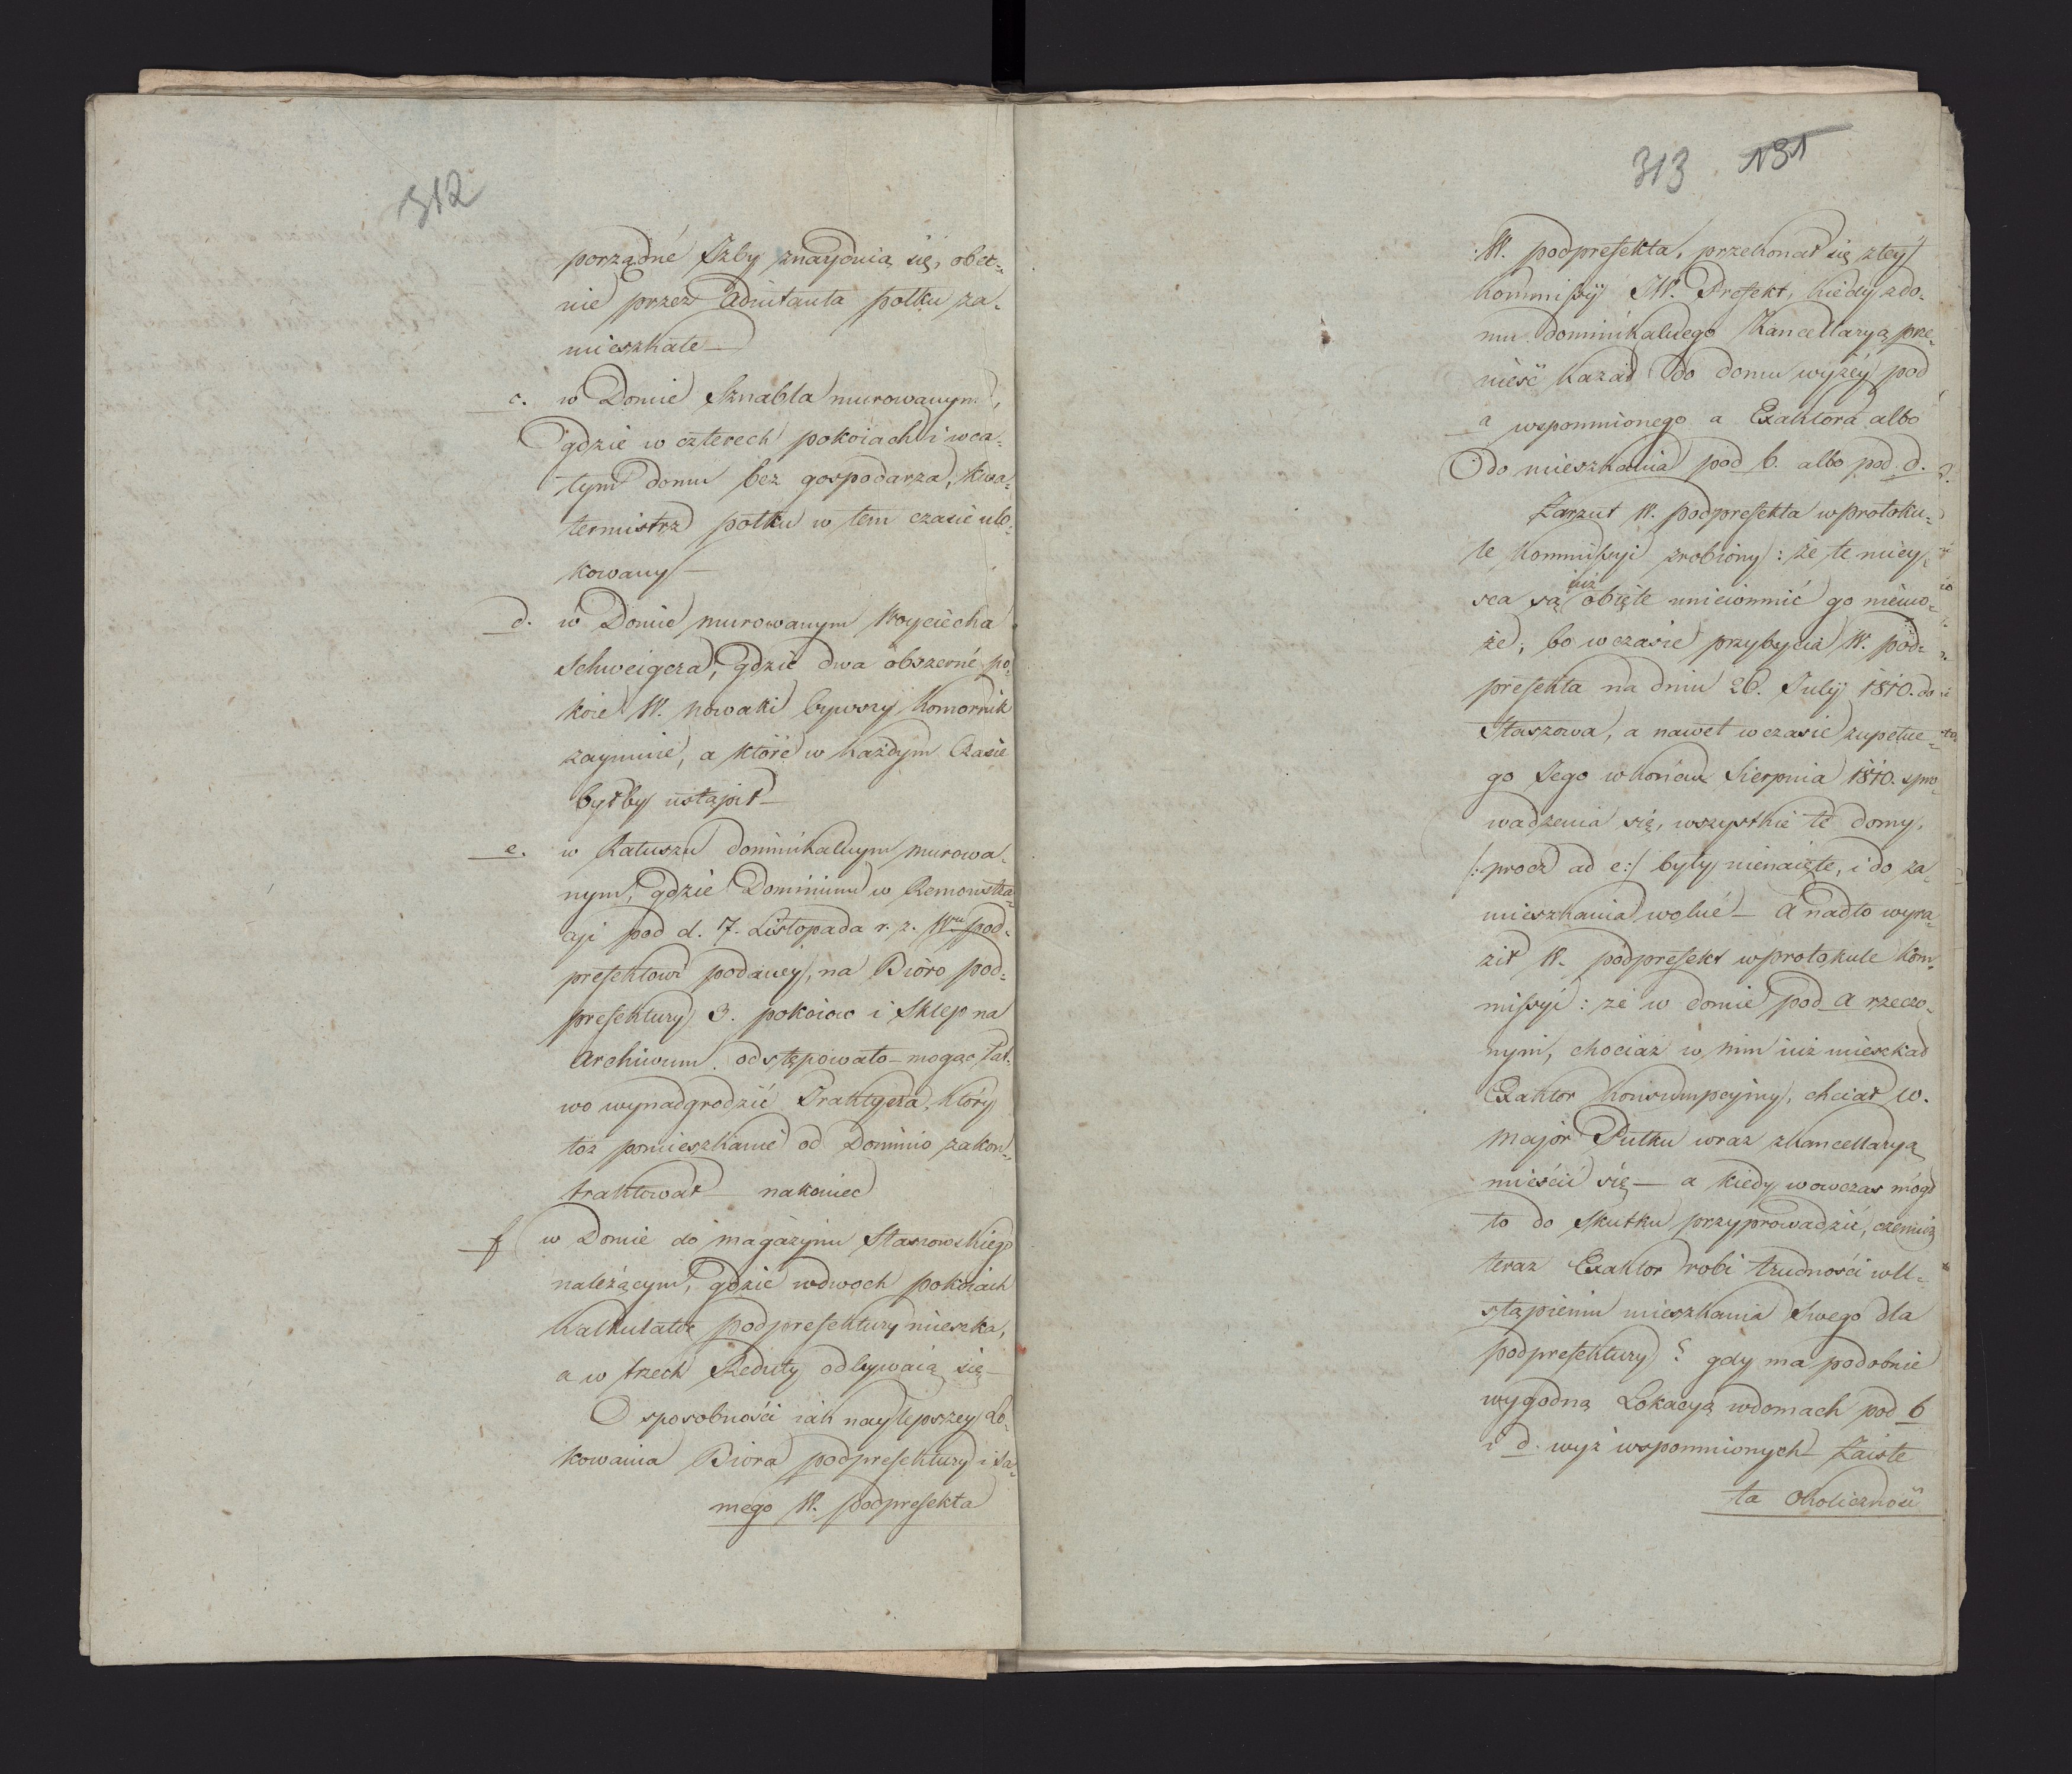 312
porządné Izby znaydnią się, obec-
nie przez Adiutanta pólku za-
mieszkałe —
c. w Domie Sznabla murowanym,
gdzie w czterech pokoiach i w ca-
łym domu bez gospodarza, Kwa-
termistrz pólku w tem czasie ulo-
kowany —
d. w Domie murowanym Woyciecha
Schweigera, gdzie dwa obszerné po-
koie W. Nowaki bywszy Komornik
zaymuie, a które w każdym Czasie
byłby ustąpił —
e. w Ratuszu dominikalnym murowa-
nym, gdzie Dominium w Remonstra-
cyi pod d. 7. Listopada r. z. Wmu pod-
prefektowi podaney, na Bióro pod-
prefektury 3. pokoiow i Sklep na
Archiwum odstępowało — mogąc łat-
wo wynadgrodzić Traktyera, który
toż pomieszkanie od Dominio zakon-
traktował — nakoniec
f w Domie do magazynu Staszowskiego
należącym, gdzie w dwoch pokoiach
Kalkulator podprefektury mieszka,
a w trzech Reduty odbywaią się —
O sposobności iak naylepszey Lo-
kowania Biora podprefektury i sa-
mego W. podprefekta
313 131
W. podprefekta, przekonał się z tey
kommissyi JW. Prefekt, kiedy z do-
mu dominikalnego Kancellaryą prze-
nieść kazał do domu wyżéy pod
a wspomnionego a Exaktora albo
do mieszkania pod b. albo pod d.
Zarzut W. podprefekta w protoku-
le kommissyi zrobiony: że te miey-
sca są iuż obięte uniewinnić go niemo-
że, bo w czasie przybycia W. pod-
prefekta na dniu 26. July 1810. do
Staszowa, a nawet w czasie zupełne-
go Jego w końcu Sierpnia 1810. spro-
wadzenia się, wszystkie te domy,
/: procz ad e :/ były nienaięte, i do za-
mieszkania wolné — A nadto wyra-
ził W. podprefekt w protokule kom-
missyi: że w domie pod a rzeczo-
nym, chociaż w nim iuż mieszkał
Exaktor Konsumpcyiny, chciał W.
Major Pułku wraz z kancellaryą
mieścić się — a kiedy wowczas mógł
to do skutku przyprowadzić, czemuż
teraz Exaktor robi trudności w U-
stąpieniu mieszkania Swego dla
podprefektury? gdy ma podobnie
wygodną Lokacyą w domach pod b
i d. wyż wspomnionych — Zaiste
ta okoliczność